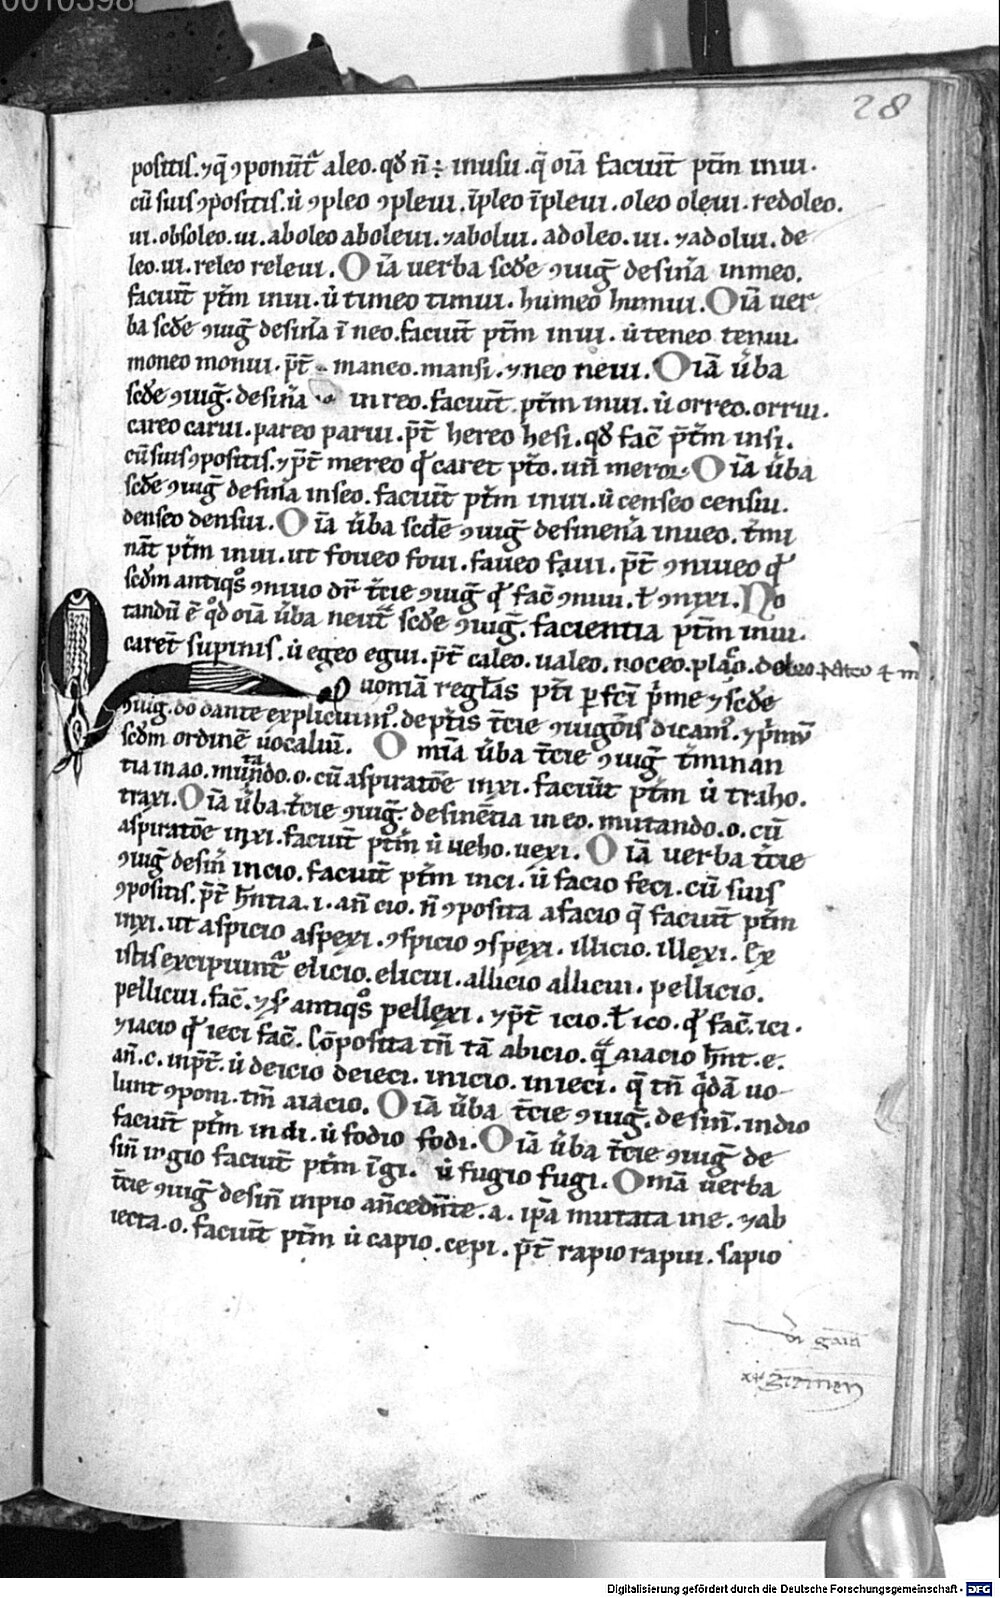 0010398
28
positis. ⁊ q̃ ꝯponūt᷑ aleo. qđ ñ ÷ inusu. q̃ oīa faciūt p̃tm inui.
cū suis ꝯpositis. ù ꝯpleo ꝯpleui. īpleo īpleui. oleo oleui. redoleo.
ui. obsoleo. ui. aboleo aboleui. ⁊ abolui. adoleo. ui. ⁊ adolui. de
leo. ui. releo releui. Oīa uerba scđe ꝯiug̃ desiña inmeo.
faciūt p̃tm inui. ù timeo timui. humeo humui. Oīa uer
ba scđe ꝯiug̃ desiña ī neo. faciūt p̃tm inui. ù teneo tenui.
moneo monui. p̃t maneo. mansi. ⁊ neo neui. Oīa ũba
scđe ꝯiug̃. desiña inreo. faciūt p̃tm inui. ù orreo. orrui.
careo carui. pareo parui. p̃t hereo hesi. qđ fac̃ p̃tm insi.
cū suis ꝯpositis. ⁊ p̃t mereo q̃ caret p̃to. uñ Oīa ũba
scđe ꝯiug̃ desiña inseo. faciūt p̃tm inui. ù censeo censui.
denseo densui. Oīa ũba scđe ꝯiug̃ desineña inueo. t̃mi
nāt p̃tm inui. ut foueo foui. faueo faui. p̃t ꝯniueo q̃
scđm antiq̊s ꝯniuo dr̃ t̃cie ꝯiug̃ q̃ fac̃ ꝯniui. ł ꝯnixi. No
tandū ē q̊d oīa ũba neut᷑ scđe ꝯiug̃. facientia p̃tm inui.
carēt supinis. ù egeo egui. p̃t caleo. ualeo. noceo. placeo. doleo.
Quoniā reglas p̃ti p̃fci p̃me ⁊ scđe
ꝯiug. do dante explicuim᷒. de p̃tis t̃cie ꝯiugōis dicam᷒. ⁊ p̃mū
scđm ordinē uocaliū. Omīa ũba t̃cie ꝯiug̃ t̃minan
tia in ao. mutando. o. cū aspiratōe inxi. faciūt p̃tm ù traho.
traxi. Oīa ũba. t̃cie ꝯiug̃. desinētia in eo. mutando. o. cū
aspiratōe inxi. faciūt p̃tm ù ueho. uexi. Oīa uerba t̃cie
ꝯiug̃ desiñ incio. faciūt p̃tm inci. ù facio feci. cū suis
ꝯpositis. p̃t hñtia. i. añ cio. ñ ꝯposita afacio q̃ faciūt p̃tm
inxi. ut aspicio aspexi. ꝯspicio ꝯspexi. illicio. illexi. Ex
istis excipiunt᷑ elicio. elicui. allicio allicui. pellicio.
pellicui. fac̃. ⁊ s̃ antiq̊s pellexi. ⁊ p̃t icio. ł ico. q̃ fac̃. ici.
⁊ iacio q̃ ieci fac̃. Cōposita tñ tā abicio. q̃ aiacio hñt. e.
añ. c. inp̃t. ù deicio deieci. inicio. inieci. q̃ tñ q̃dā uo
lunt ꝯponi. tm̃ aiacio. Oīa ũba t̃cie ꝯiug̃. desiñ. indio
faciūt p̃tm indi. ù fodio fodi. Oīa ũba t̃cie ꝯiug̃ de
siñ ingio faciūt p̃tm īgi. ù fugio fugi. Omīa uerba
t̃cie ꝯiug̃ desiñ inpio añcedñte. a. ip̃a mutata ine. ⁊ ab
iecta. o. faciūt p̃tm ù capio. cepi. p̃t rapio rapui. sapio
Digitalisierung gefördert durch die Deutsche Forschungsgemeinschaft - DFG